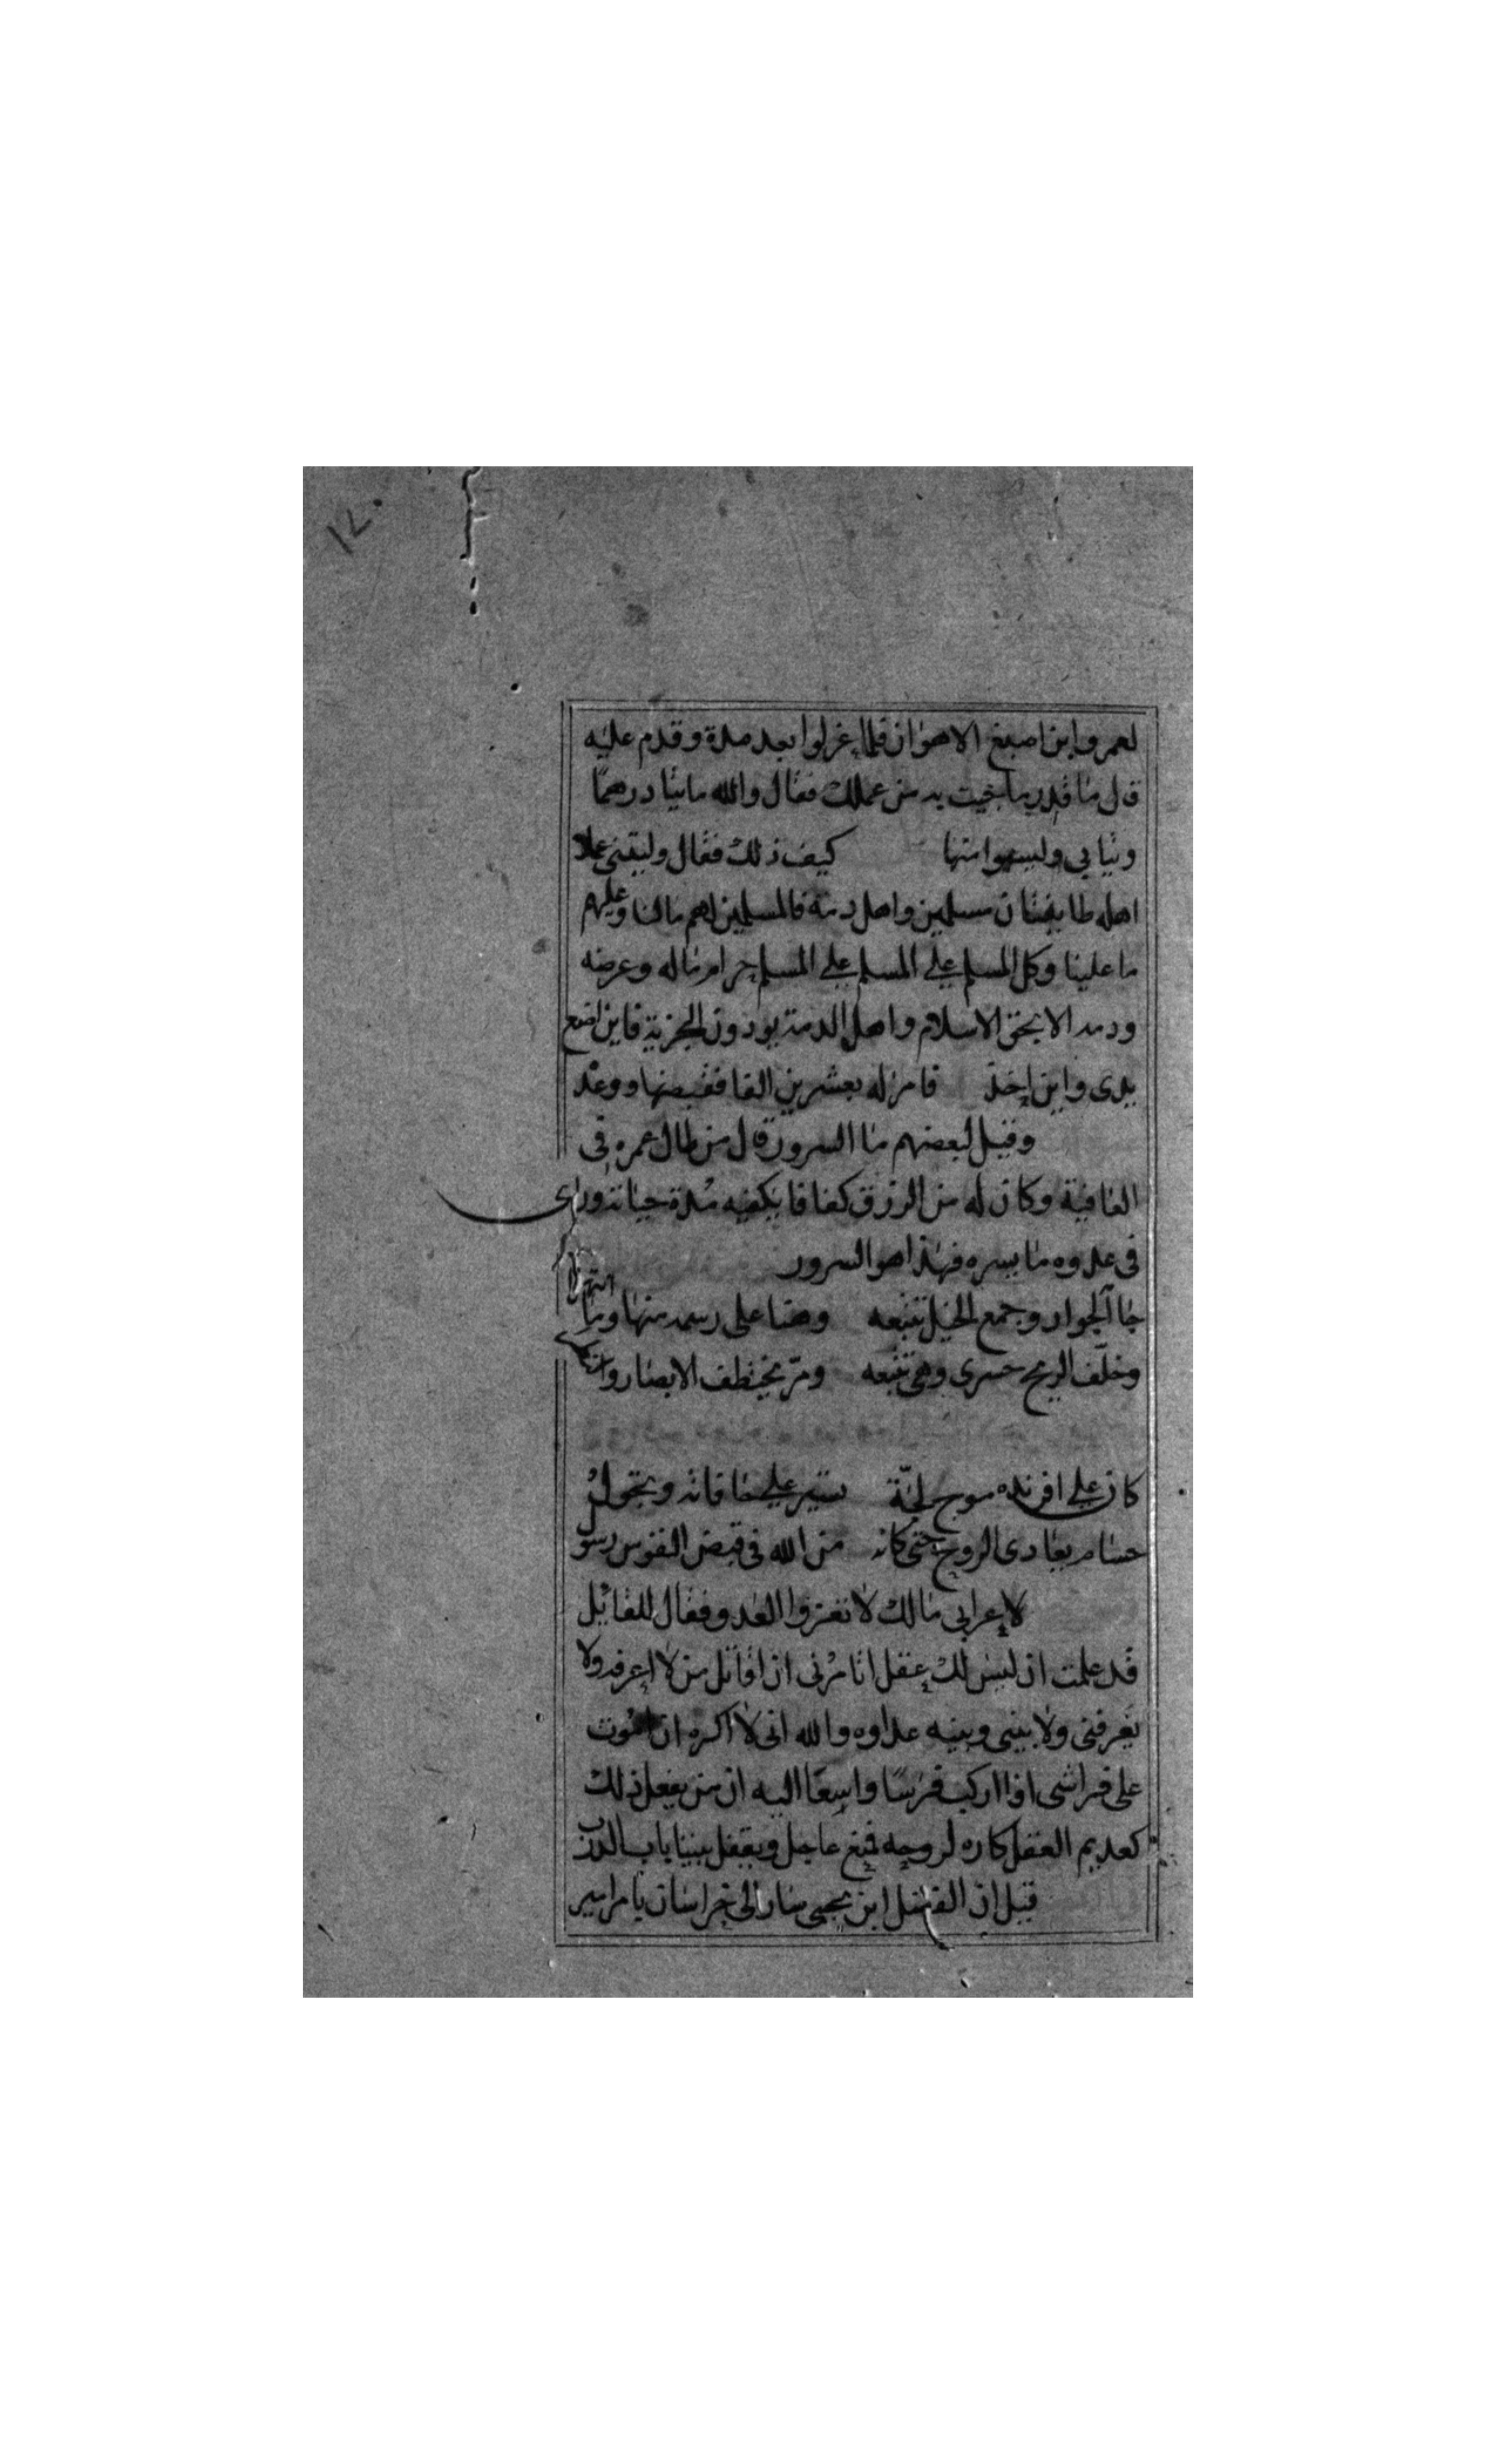 ١٢٠
لعمرو ابن اصبغ الاهوان فلما غزلوا بعد مدة وقدم عليه
قال ما قدر ما جيت به من عملك فقال والله مايتا درهما
وثيابي وليسوا منها كيف ذلك فقال وليتني علا
اهله طايفتان مسلمين واهل دمة فالمسلمين لهم مالنا وعليهم
ما علينا وكل المسلم علي المسلم علي المسلم حرام ماله وعرضه
ودمه الا بحق الاسلام واهل الدمة يودون الجزية فاين اضع
يدى واين اخذ فامر له بعشرين الفا فقبضها ووعد
وقيل لبعضهم ما السرور قال من طال عمره في
العافية وكان له من الرزق كفافا يكفيه مدة حياته وراى
في عدوه ما يسره فهذا هو السرور
جا الجواد وجمع الخيل تتبعه وهنا على رسمه منها وما انتهرا
وخلّف الريح حسرى وهي تتبعه ومرّ يختطف الابصار و
كان علي افرنده موج لجّة تسير علي حافاته وتجول
حسام بغادى الروح حتى كانه من الله في قبض النفوس رسول
لاعرابي مالك لا تغزوا العدو فقال للقائل
قد علمت ان ليس لك عقل اتامرني ان اقاتل من لا اعرفه ولا
يعرفني ولا بيني وبينه عداوه والله اني لا اكره ان اموت
على فراشي اذا اركب فرسا واسعا اليه ان من يفعل ذلك
كعديم العقل كاره لروحه فتبغ عاجل ويقفل بيننا باب الدرب
قيل ان الفضل ابن يحيى سار الى خراسان يامر امير